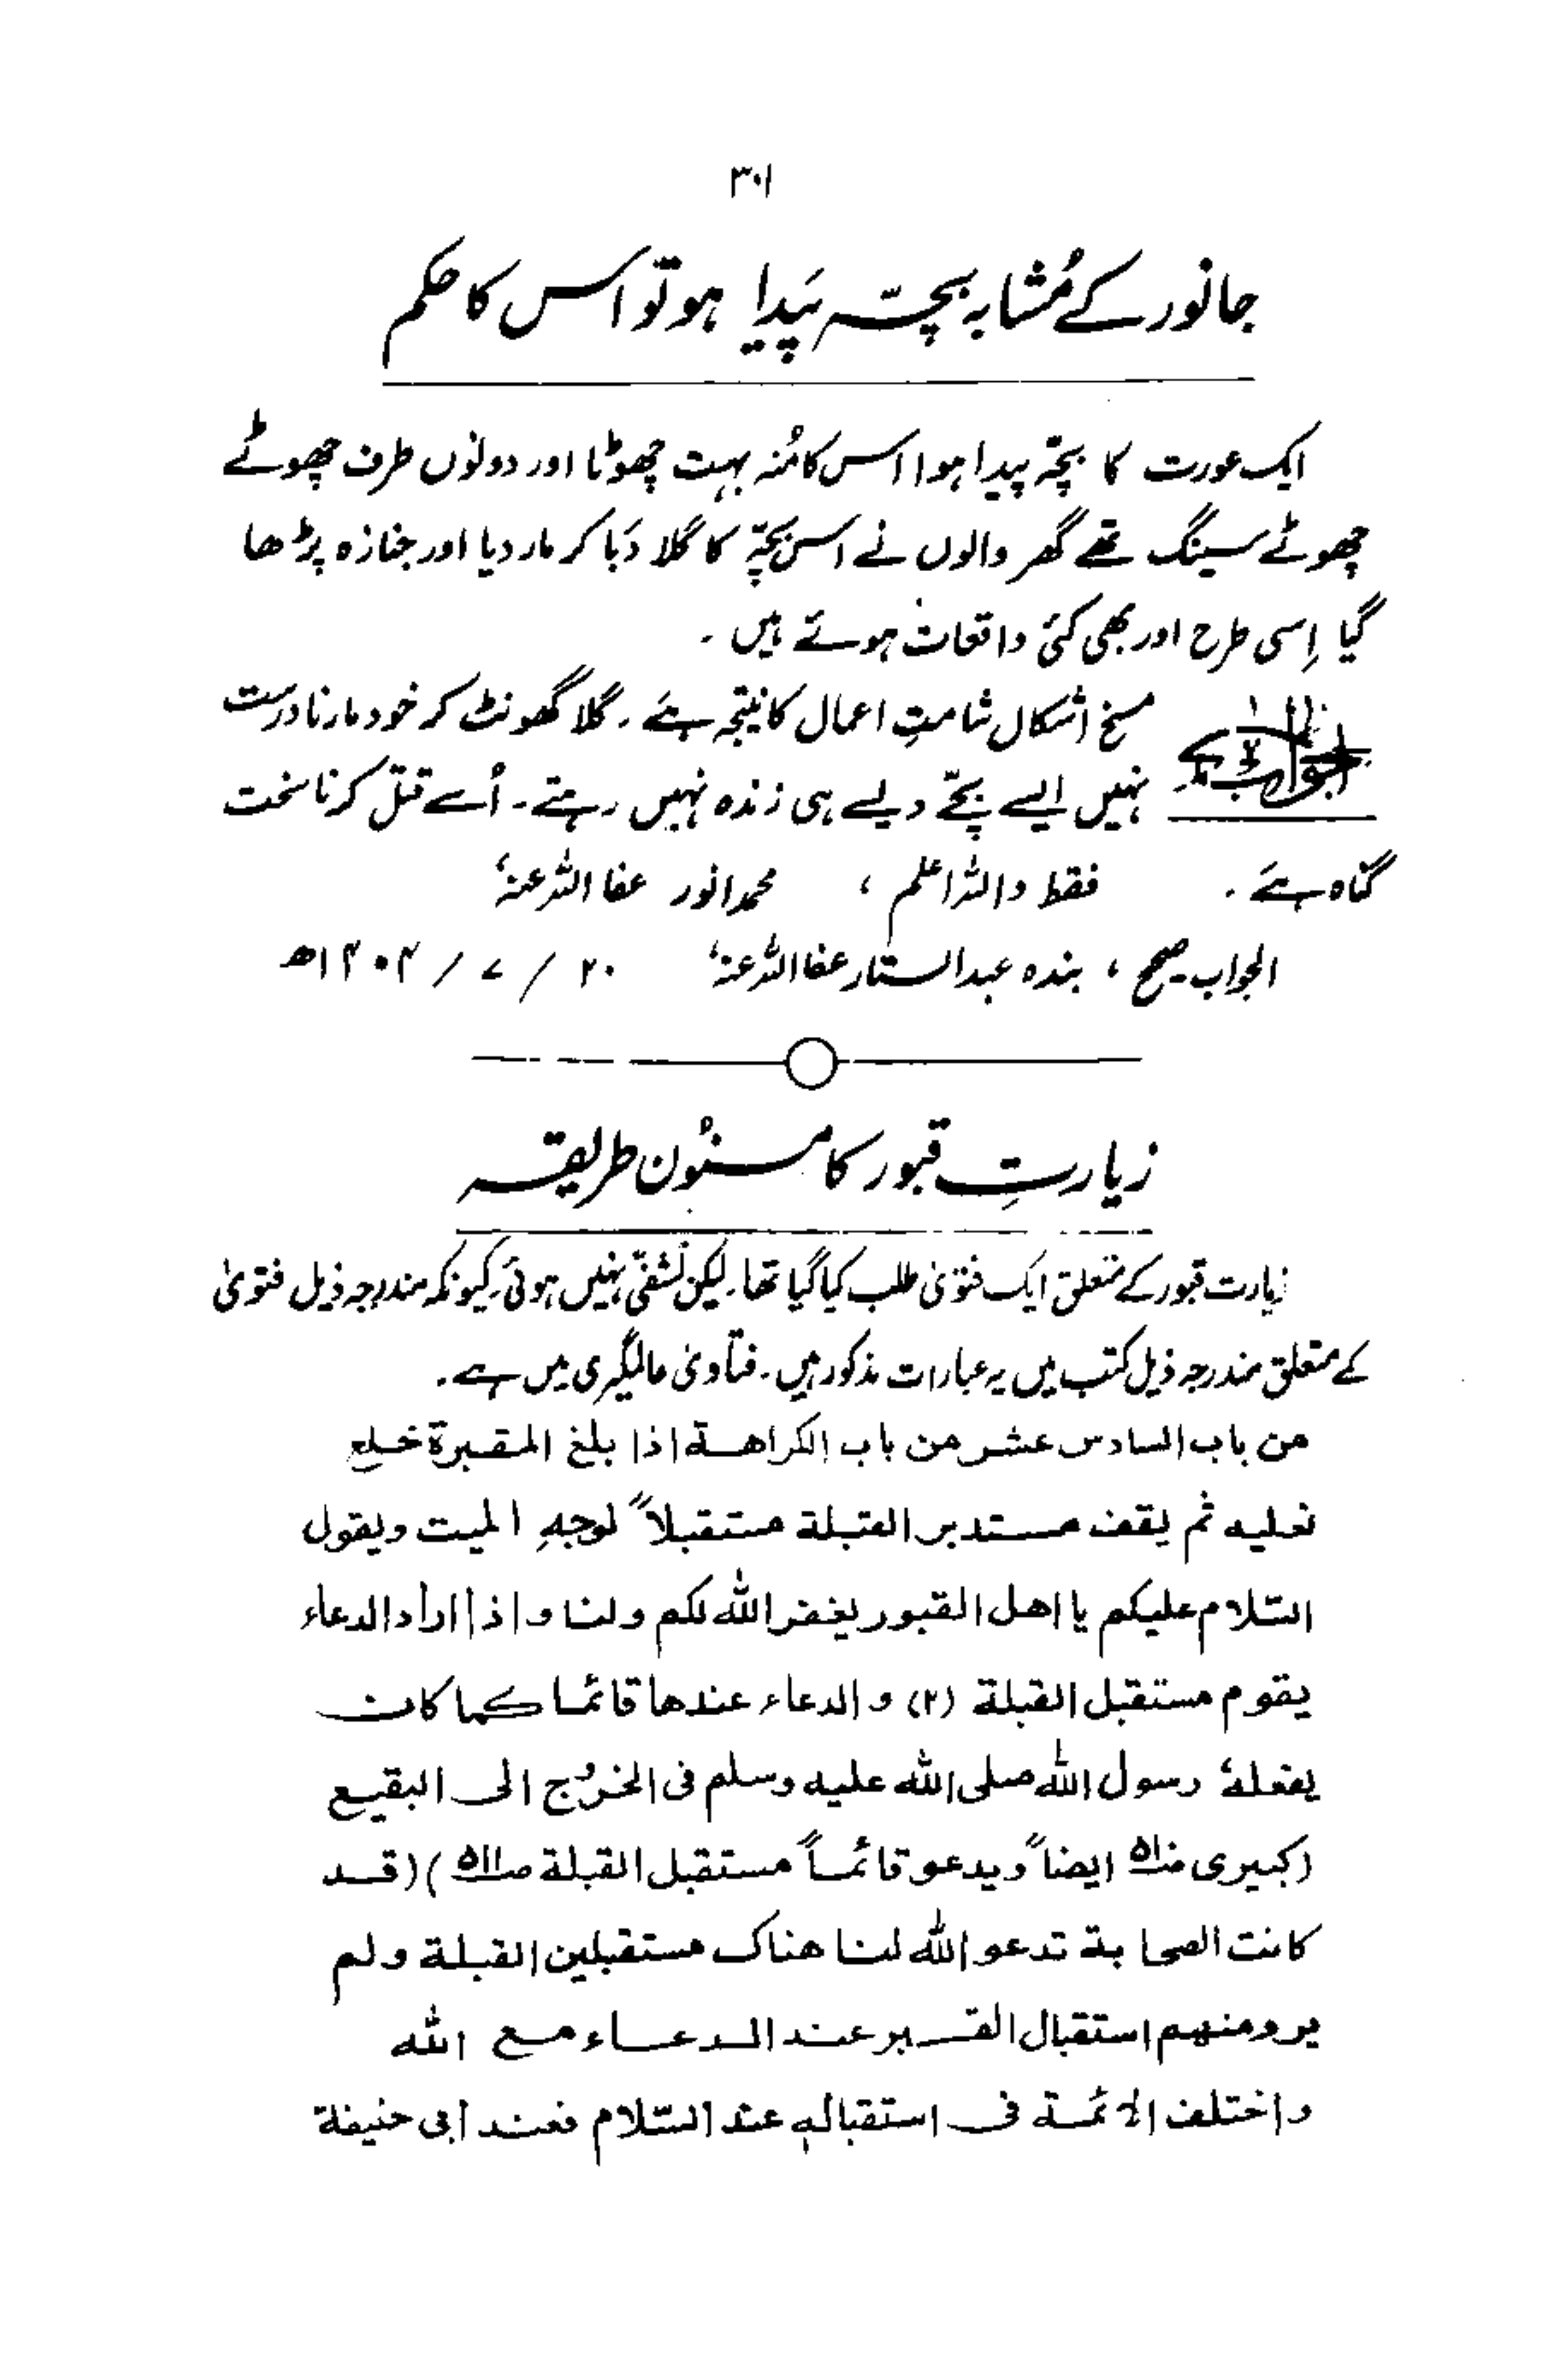 ۳۰۱
جانور کے مُشابہ بچّہ پَیدا ہو تو اس کا حکم
ایک عورت کا بچّہ پیدا ہوا اس کا مُنہ بہت چھوٹا اور دونوں طرف چھوٹے
چھوٹے سینگ تھے گھر والوں نے اس بچّے کا گلا دَبا کر مار دیا اور جنازہ پڑھا
گیا اِسی طرح اور بھی کئی واقعات ہوئے ہیں ۔
الجواب مسخ اشکال شامتِ اعمال کا نتیجہ ہے ۔ گلا گھونٹ کر خود مارنا درست
نہیں ایسے بچّے ویسے ہی زندہ نہیں رہتے ۔ اُسے قتل کرنا سخت
گناہ ہے ۔ فقط واللہ اعلم ، محمد انور عفا اللہ عنہٗ
الجواب صحیح ، بندہ عبدالستار عفا اللہ عنہٗ ۲۰ / ۷ / ۱۴۰۴ھ
زیارتِ قبور کا مسنُون طریقہ
زیارت قبور کے متعلق ایک فتویٰ طلب کیا گیا تھا ۔ لیکن تشفّی نہیں ہوئی کیونکہ مندرجہ ذیل فتویٰ
کے متعلق مندرجہ ذیل کتب میں یہ عبارات مذکور ہیں ۔ فتاویٰ عالمگیری میں ہے ۔
من باب السادس عشر من باب الکراهة اذا بلغ المقبرة خلع
نعلیه ثم یقف مستدبر القبلة مستقبلاً لوجهِ المیت ویقول
السّلام علیکم یا اهل القبور یغفر الله لکم ولنا واذا اراد الدعاء
یقوم مستقبل القبلة (۲) والدعاء عندها قائما کما کان
یفعلهٗ رسول الله صلی الله علیه وسلم فی الخرُوج الی البقیع
(کبیری ص۵۱۰ ایضاً ویدعو قائماً مستقبل القبلة ص۵۱۱) (قد
کانت الصحابة تدعو الله لنا هناک مستقبلین القبلة ولم
یرو منهم استقبال القبر عند الدعاء مع الله
واختلف الائمة فی استقبالهٖ عند السّلام فعند ابی حنیفة